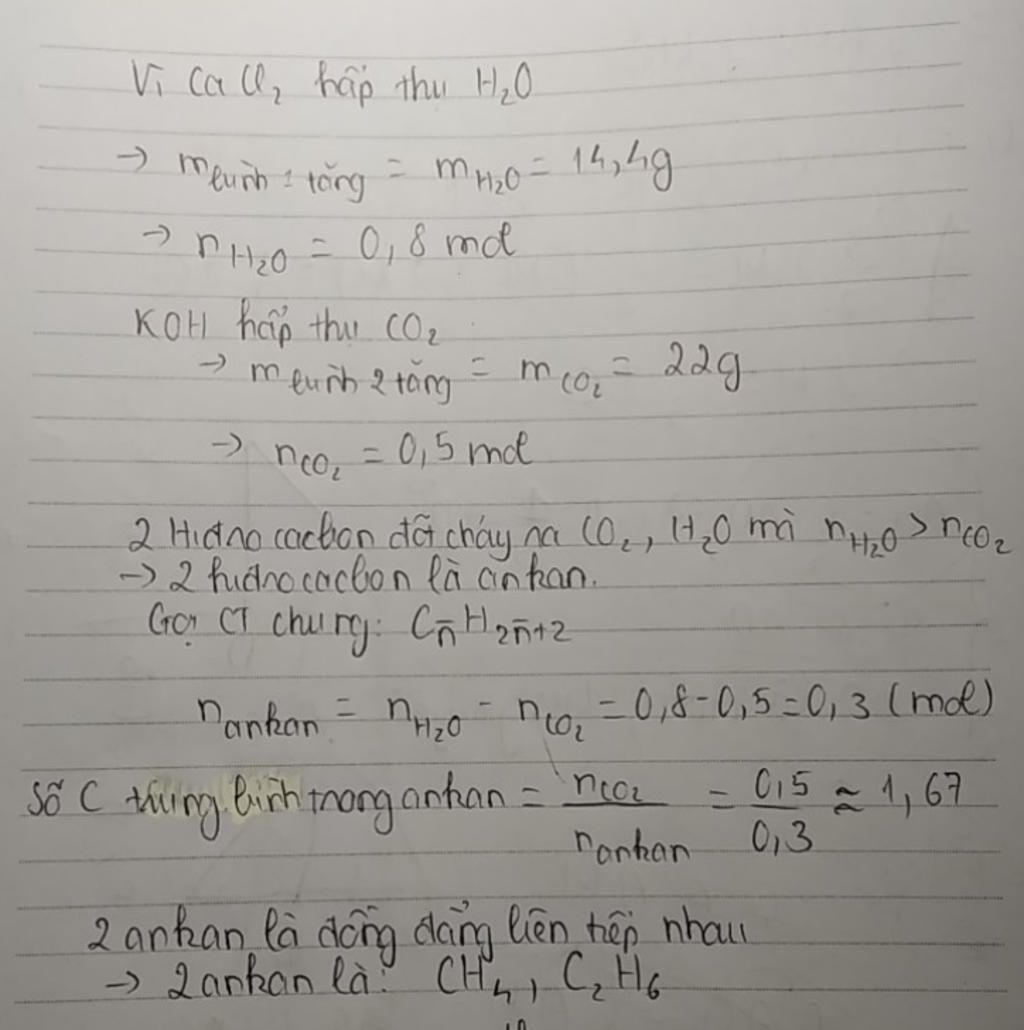 Vì CaCl₂ hấp thu H₂O
→ m bình 1 tăng = m H₂O = 14,4g
→ n H₂O = 0,8 mol
KOH hấp thu CO₂
→ m bình 2 tăng = m CO₂ = 22g
→ n CO₂ = 0,5 mol
2 Hiđro cacbon đốt cháy ra CO₂, H₂O mà n H₂O > n CO₂
→ 2 hiđro cacbon là ankan.
Gọi CT chung: Cn̄H₂n̄₊₂
n ankan = n H₂O - n CO₂ = 0,8-0,5=0,3 (mol)
Số C trung bình trong ankan = nCO₂ / n ankan = 0,5 / 0,3 ≈ 1,67
2 ankan là đồng đẳng liên tiếp nhau
→ 2 ankan là: CH₄, C₂H₆